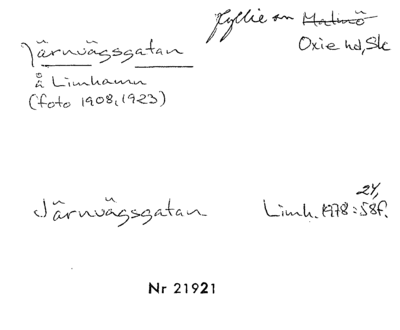 Hyllie sn Malmö
Järnvägsgatan
Oxie hd, Sk
å Limhamn
(foto 1908, 1923)
24,
Järnvägsgatan Limh. 1978:58f.
Nr 21921